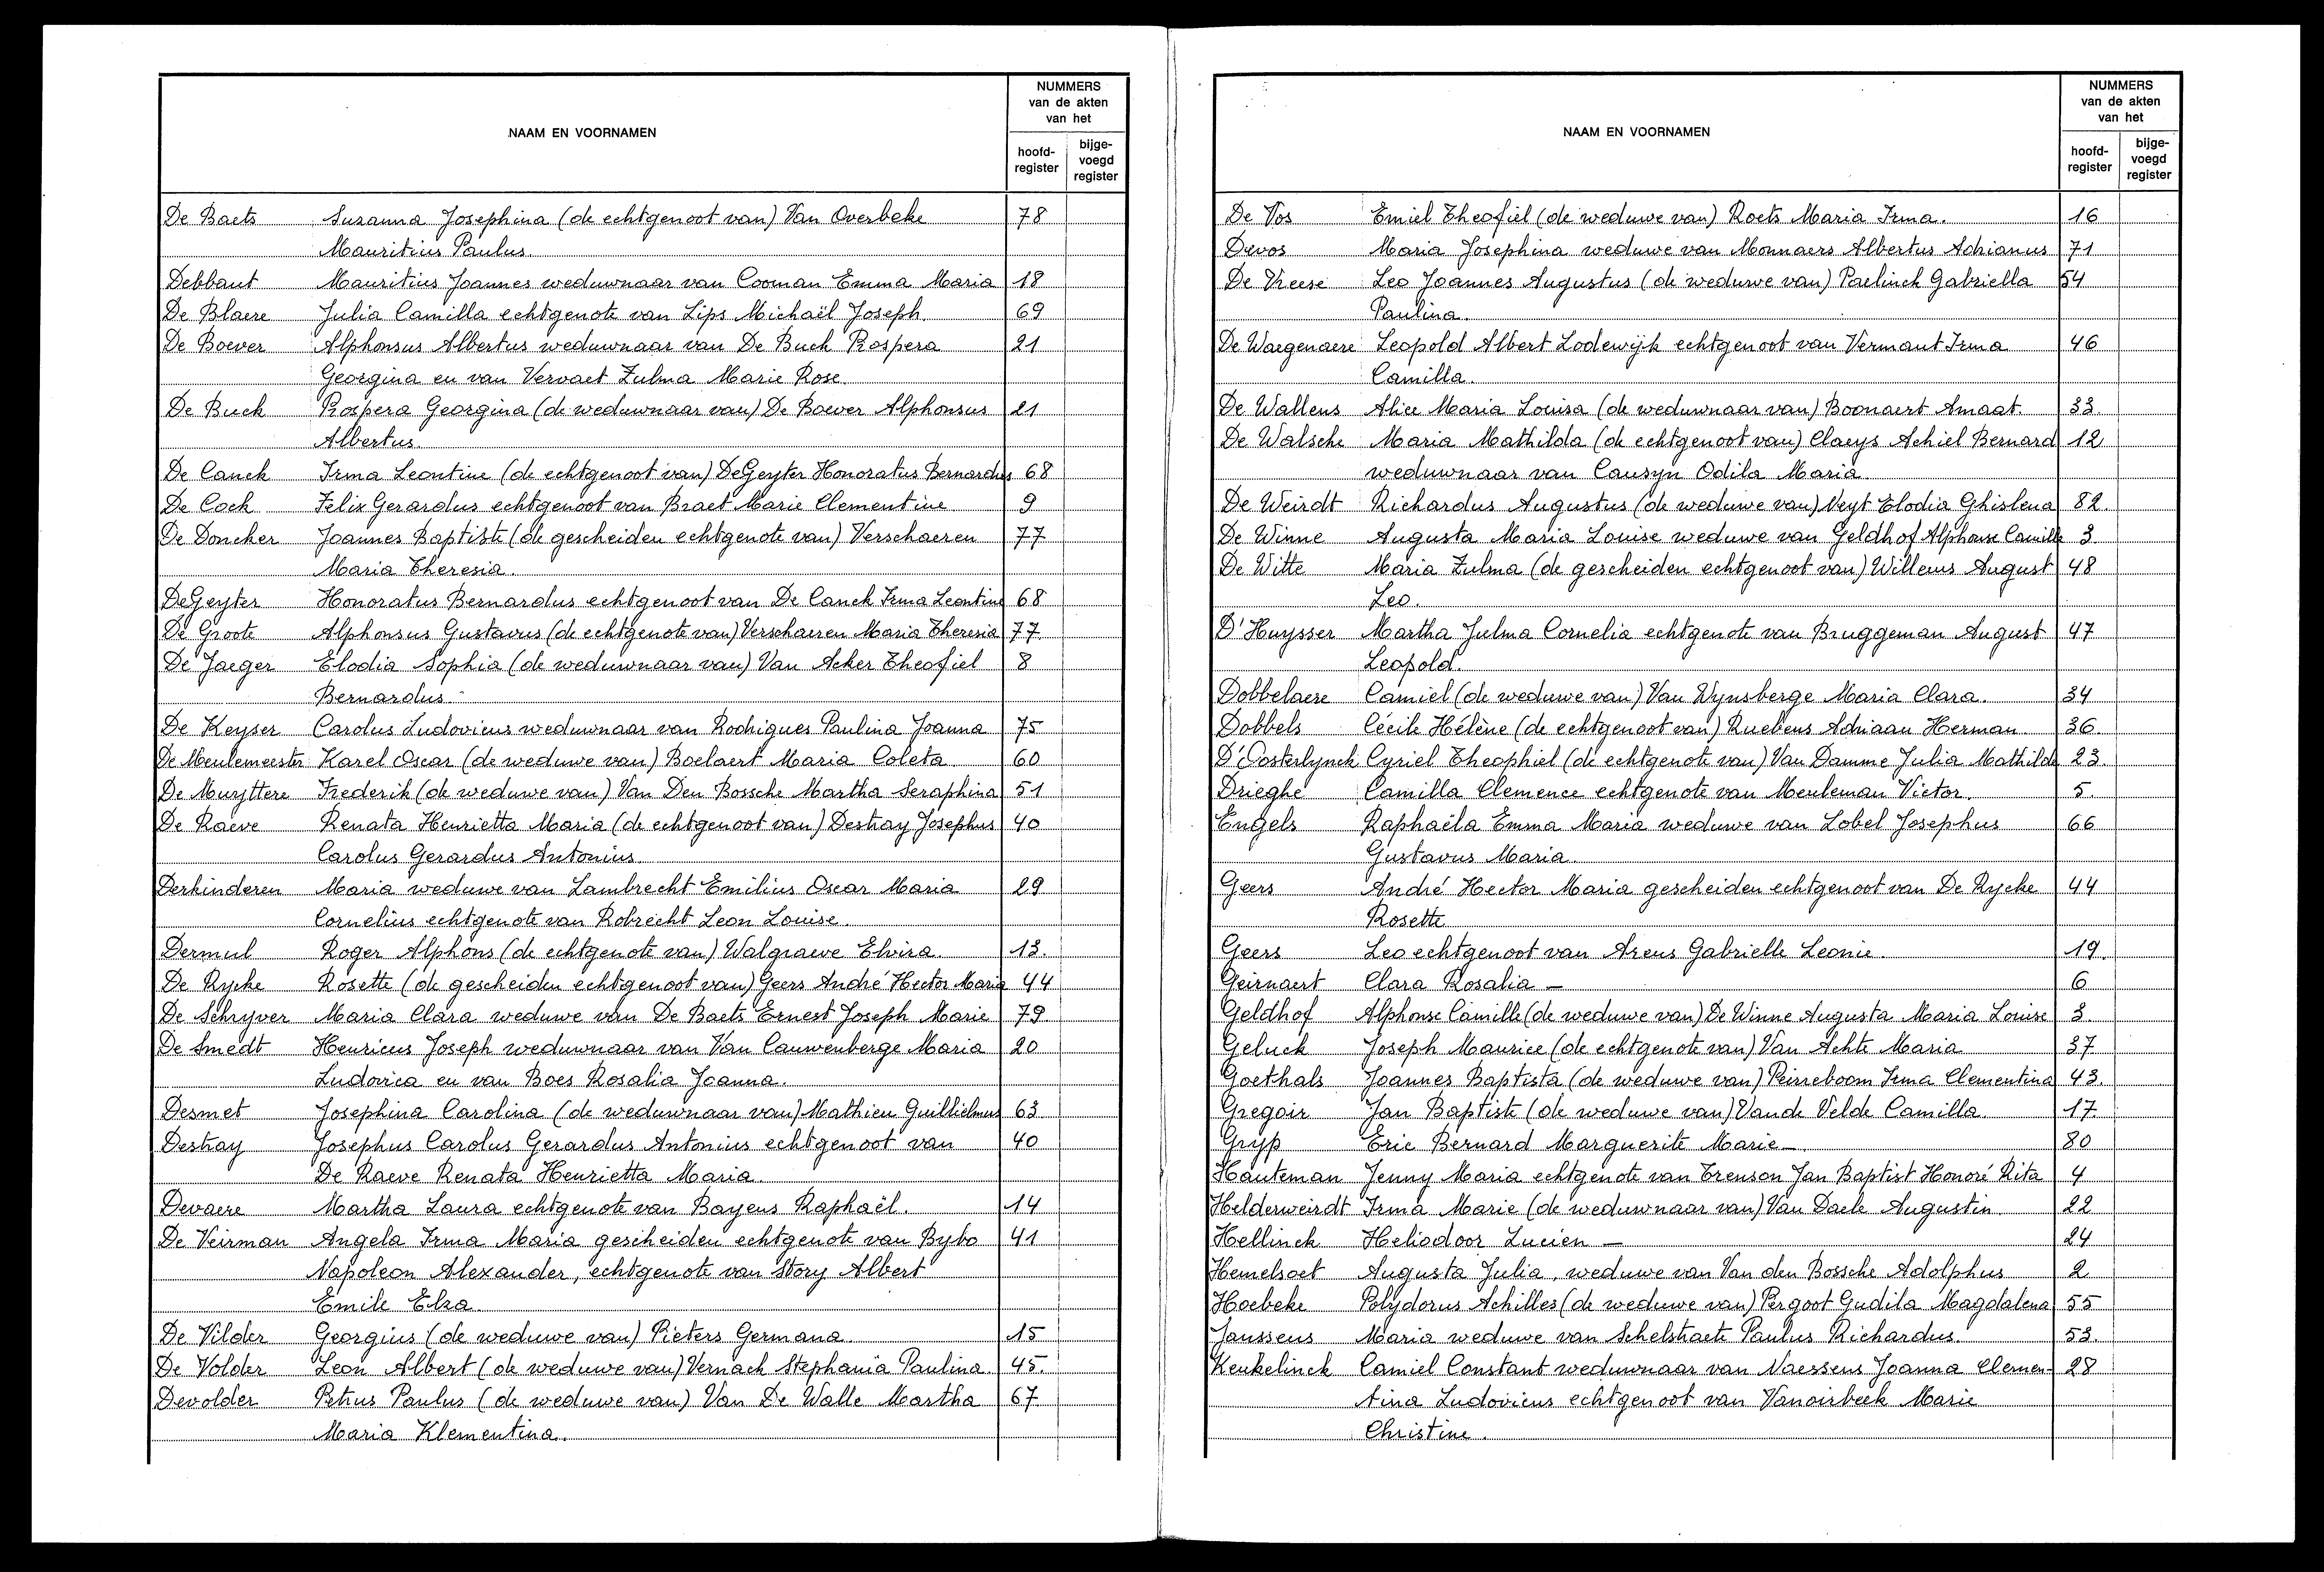 NAAM EN VOORNAMEN
NUMMERS
van de akten
van het
hoofd-
register
bijge-
voegd
register
De Baets Suzanna Josephina (de echtgenoot van) Van Overbeke 78
Mauritius Paulus.
Debbaut Mauritius Joannes weduwnaar van Cooman Emma Maria 18
De Blaere Julia Camilla echtgenote van Lips Michaël Joseph. 69
De Boever Alphonsus Albertus weduwnaar van De Buck Prospera 21
Georgina en van Vervaet Zulma Marie Rose.
De Buck Prospera Georgina (de weduwnaar van) De Boever Alphonsus 21
Albertus.
De Canck Irma Leontine (de echtgenoot van) DeGeyter Honoratus Bernardus 68
De Cock Felix Gerardus echtgenoot van Braet Marie Clementine 9
De Doncker Joannes Baptiste (de gescheiden echtgenote van) Verschaeren 77
Maria Theresia.
DeGeyter Honoratus Bernardus echtgenoot van De Canck Irma Leontine 68
De Groote Alphonsus Gustavus (de echtgenote van) Verschaeren Maria Theresia 77
De Jaeger Elodia Sophia (de weduwnaar van) Van Acker Theofiel 8
Bernardus.
De Keyser Carolus Ludovicus weduwnaar van Rodrigues Paulina Joanna 75
De Meulemeester Karel Oscar (de weduwe van) Boelaert Maria Coleta 60
De Muyttere Frederik (de weduwe van) Van Den Bossche Martha Seraphina 51
De Raeve Renata Henrietta Maria (de echtgenoot van) Destray Josephus 40
Carolus Gerardus Antonius
Derkinderen Maria weduwe van Lambrecht Emilius Oscar Maria 29
Cornelius echtgenote van Robrecht Leon Louise.
Dermul Roger Alphons (de echtgenote van) Walgraeve Elvira. 13.
De Rycke Rosette (de gescheiden echtgenoot van) Geers André Hector Maria 44
De Schryver Maria Clara weduwe van De Baets Ernest Joseph Marie 79
De Smedt Henricus Joseph weduwnaar van Van Cauwenberge Maria 20
Ludovica en van Boes Rosalia Joanna.
Desmet Josephina Carolina (de weduwnaar van) Mathieu Guillielmus 63
Destray Josephus Carolus Gerardus Antonius echtgenoot van 40
De Raeve Renata Henrietta Maria.
Devaere Martha Laura echtgenote van Bayens Raphaël. 14
De Veirman Angela Irma Maria gescheiden echtgenote van Bybo 41
Napoleon Alexander, echtgenote van Story Albert
Emile Elza
De Vilder Georgius (de weduwe van) Pieters Germana 15
De Volder Leon Albert (de weduwe van) Vernack Stephania Paulina. 45.
Devolder Petrus Paulus (de weduwe van) Van De Walle Martha 67
Maria Klementina.
NAAM EN VOORNAMEN
NUMMERS
van de akten
van het
hoofd-
register
bijge-
voegd
register
De Vos Emiel Theofiel (de weduwe van) Roets Maria Irma. 16
Devos Maria Josephina weduwe van Monnaers Albertus Adrianus 71
De Vreese Leo Joannes Augustus (de weduwe van) Paelinck Gabriella 54
Paulina.
De Waegenaere Leopold Albert Lodewijk echtgenoot van Vermaut Irma 46
Camilla.
De Wallens Alice Maria Louisa (de weduwnaar van) Boonaert Amaat. 33.
De Walsche Maria Mathilda (de echtgenoot van) Claeys Achiel Bernard 12
weduwnaar van Causyn Odila Maria
De Weirdt Richardus Augustus (de weduwe van) Neyt Elodia Ghislena 82.
De Winne Augusta Maria Louise weduwe van Geldhof Alphonse Camille 3
De Witte Maria Zulma (de gescheiden echtgenoot van) Willems August 48
Leo.
D'Huysser Martha Julma Cornelia echtgenote van Bruggeman August 47
Leopold.
Dobbelaere Camiel (de weduwe van) Van Wynsberge Maria Clara. 34
Dobbels Cécile Hélène (de echtgenoot van) Ruebens Adriaan Herman. 36.
D'Oosterlynck Cyriel Theophiel (de echtgenote van) Van Damme Julia Mathilde 23.
Drieghe Camilla Clemence echtgenote van Meuleman Victor. 5.
Engels Raphaëla Emma Maria weduwe van Lobel Josephus 66
Gustavus Maria
Geers André Hector Maria gescheiden echtgenoot van De Rycke 44
Rosette
Geers Leo echtgenoot van Arens Gabrielle Leonie. 19.
Geirnaert Clara Rosalia — 6
Geldhof Alphonse Camille (de weduwe van) De Winne Augusta Maria Louise 3.
Geluck Joseph Maurice (de echtgenote van) Van Achte Maria 37
Goethals Joannes Baptista (de weduwe van) Peirreboom Irma Clementina 43.
Gregoir Jan Baptiste (de weduwe van) Vande Velde Camilla 17
Gryp Eric Bernard Marguerite Marie — 80
Hauteman Jenny Maria echtgenote van Trenson Jan Baptist Honoré Rita 4
Helderweirdt Irma Marie (de weduwnaar van) Van Daele Augustin 22
Hellinck Heliodoor Lucien — 24
Hemelsoet Augusta Julia, weduwe van Van den Bossche Adolphus 2
Hoebeke Polydorus Achilles (de weduwe van) Pergoot Gudila Magdalena 55
Janssens Maria weduwe van Schelstraete Paulus Richardus. 53.
Keukelinck Camiel Constant weduwnaar van Naessens Joanna Clemen- 28
tina Ludovicus echtgenoot van Vanoirbeek Marie
Christine.